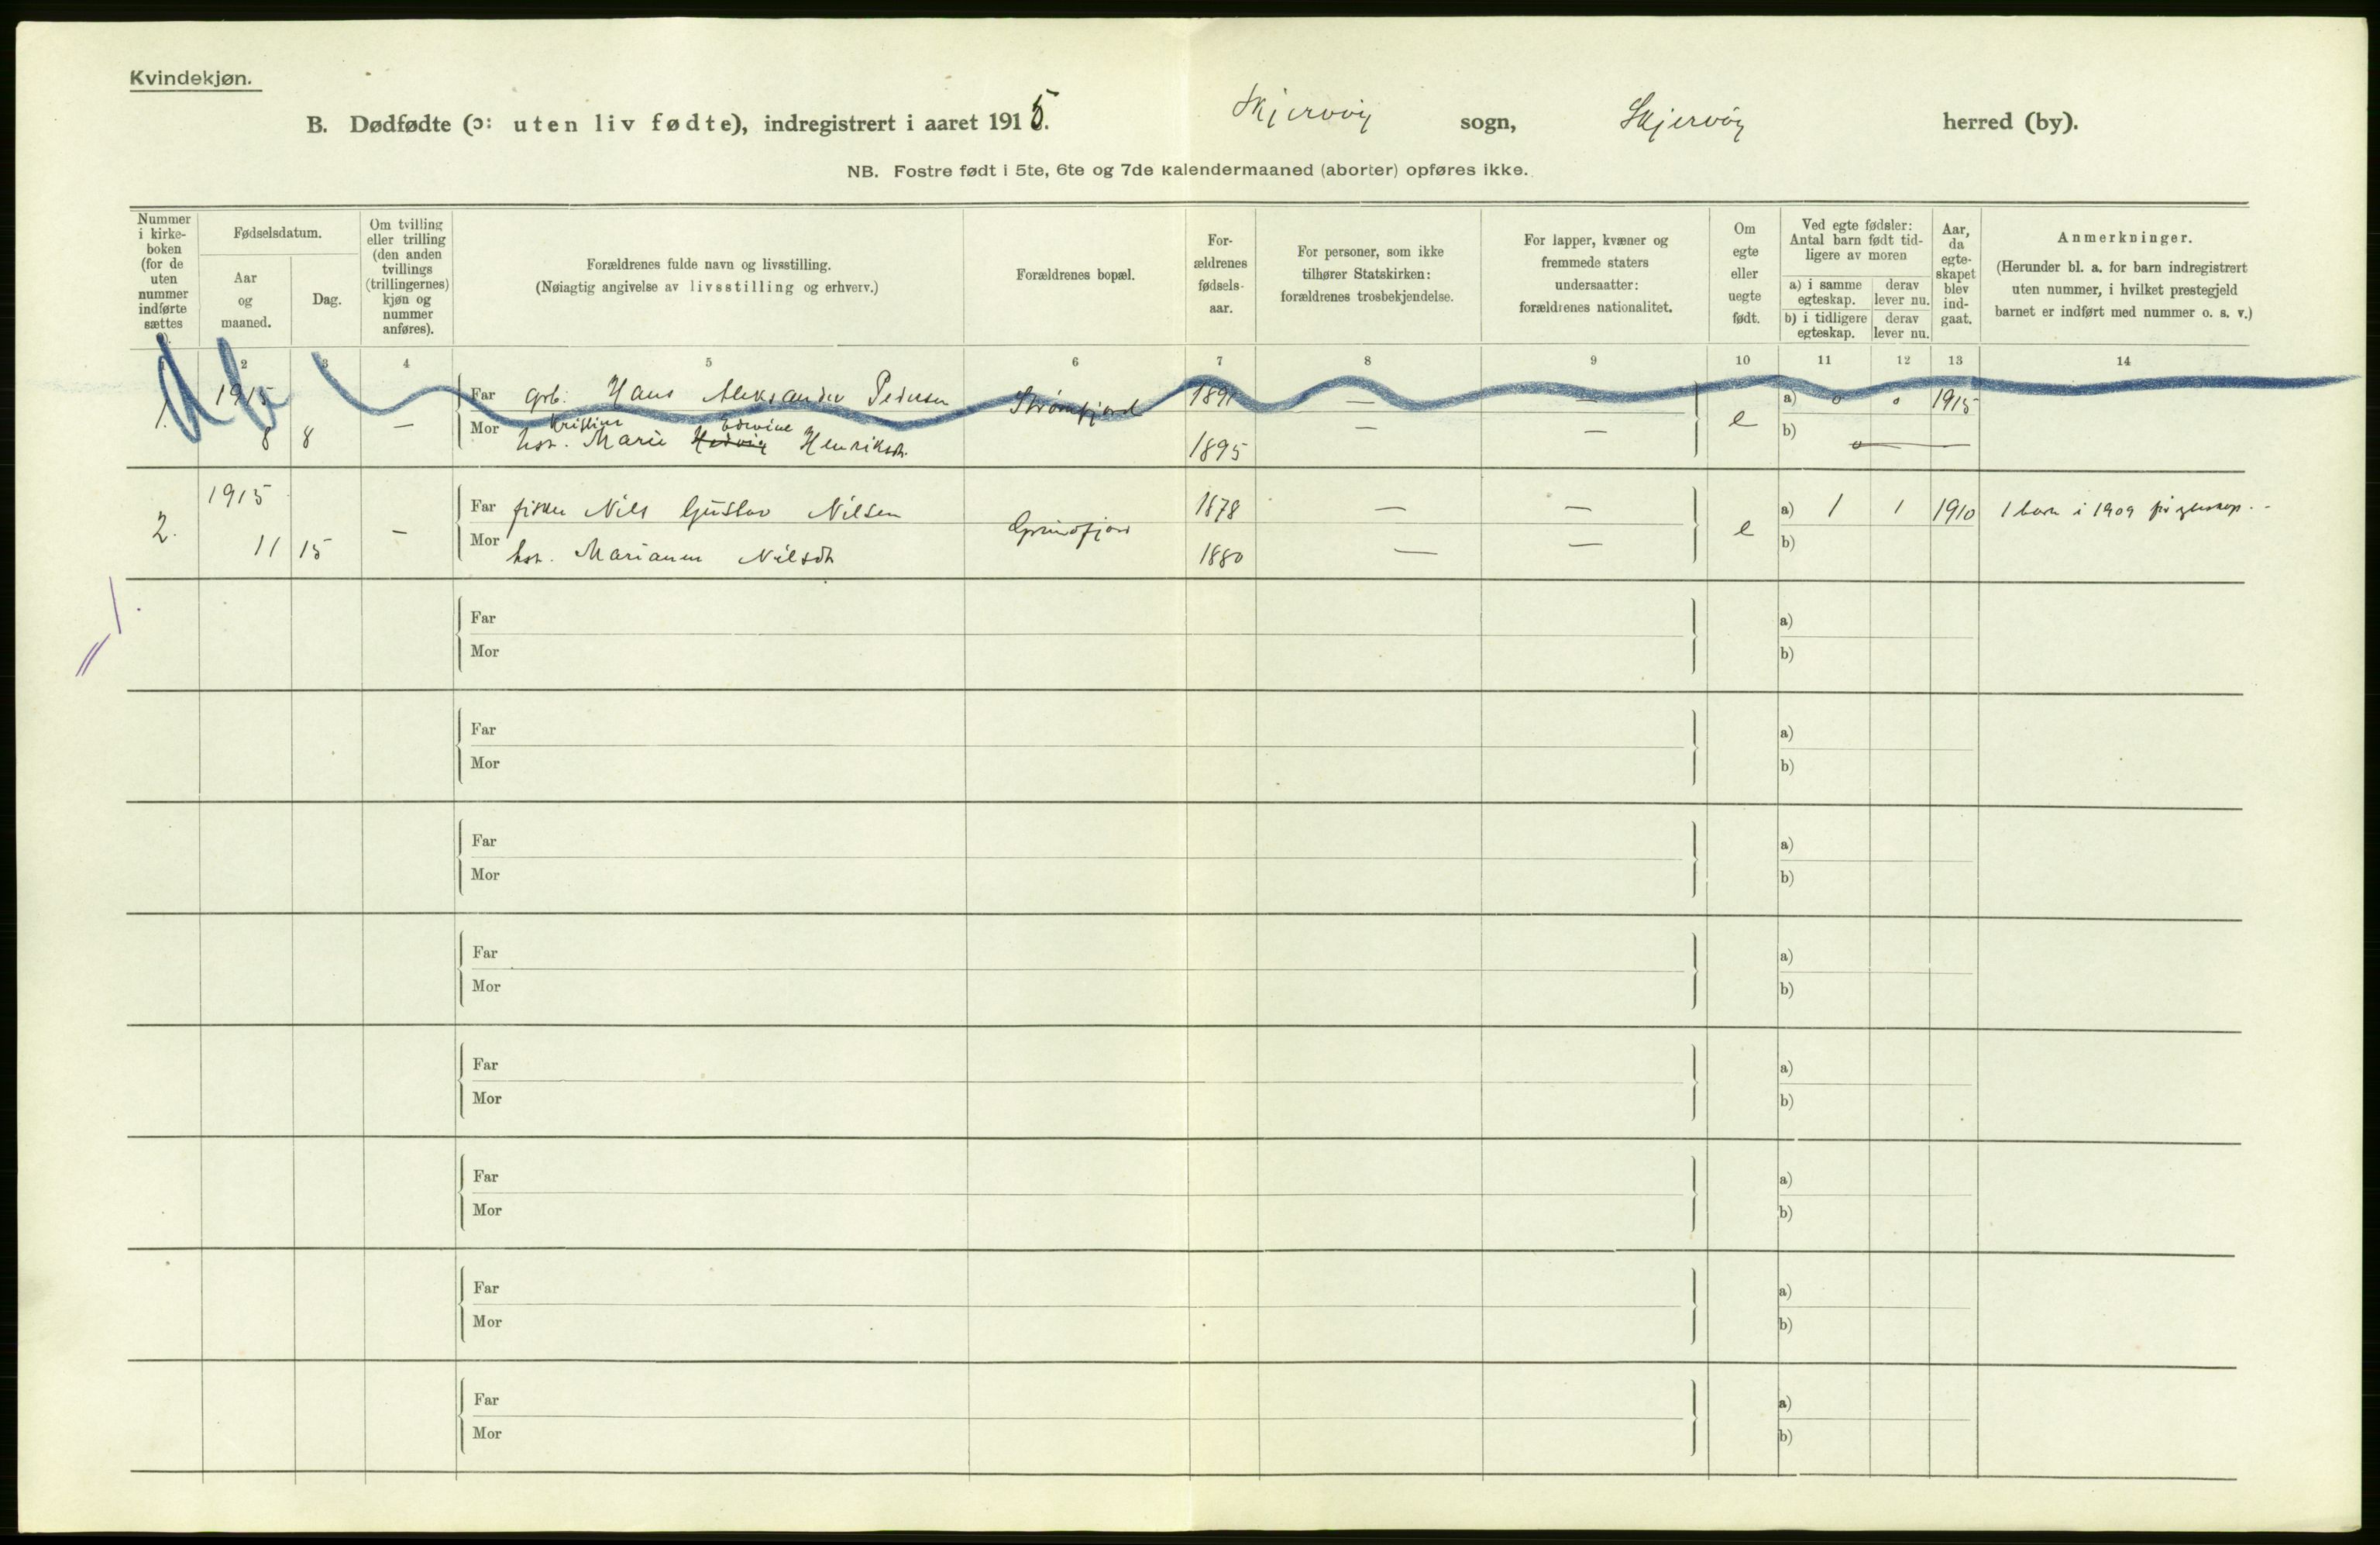 Kvindekjøn.
B. Dødfødte (ɔ: uten liv fødte), indregistrert i aaret 1915. Skjervøy sogn, Skjervøy herred (by).
NB. Fostre født i 5te, 6te og 7de kalendermaaned (aborter) opføres ikke.
Nummer
i kirke-
boken
(for de
uten
nummer
indførte
sættes
Fødselsdatum.
Aar
og
maaned.
Dag.
Om tvilling
eller trilling
(den anden
tvillings
(trillingernes)
kjøn og
nummer
anføres).
Forældrenes fulde navn og livsstilling.
(Nøiagtig angivelse av livsstilling og erhverv.)
Forældrenes bopæl.
For-
ældrenes
fødsels-
aar.
For personer, som ikke
tilhører Statskirken:
forældrenes trosbekjendelse.
For lapper, kvæner og
fremmede staters
undersaatter:
forældrenes nationalitet.
Om
egte
eller
uegte
født.
Ved egte fødsler:
Antal barn født tid-
ligere av moren
a) i samme
egteskap.
derav
lever nu.
b) i tidligere
egteskap.
derav
lever nu.
Aar,
da
egte-
skapet
blev
ind-
gaat.
Anmerkninger.
(Herunder bl. a. for barn indregistrert
uten nummer, i hvilket prestegjeld
barnet er indført med nummer o. s. v.)
2 3 4 5 6 7 8 9 10 11 12 13 14
1. 1915 Far Hans Aleksander Pedersen 1891 — — a) o o 1915
Kristine Edevine
8 8 — Mor hst. Marie Hedvig Henriksdt. 1895 — — e b) o
2. 1915 Far fisker Nils Gustav Nilsen 1878 — — a) 1 1 1910 1 barn i 1909
11 15 — Mor hst. Marianna Nilsdt 1880 — — e b)
Far a)
Mor b)
Far a)
Mor b)
Far a)
Mor b)
Far a)
Mor b)
Far a)
Mor b)
Far a)
Mor b)
Far a)
Mor b)
Far a)
Mor b)